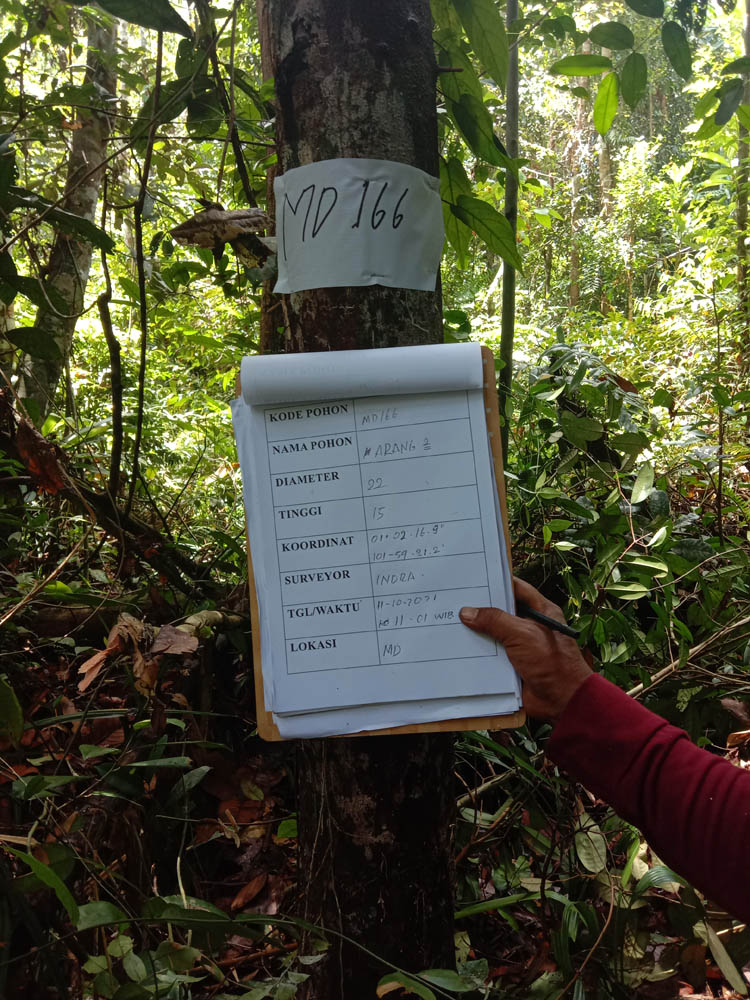 MD 166
KODE POHON MD166
NAMA POHON ARANG 2
DIAMETER 22
TINGGI 15
KOORDINAT 01·02·16.9"
101-59-21.2"
SURVEYOR INDRA.
TGL/WAKTU 11-10-2021
11-01 WIB
LOKASI MD